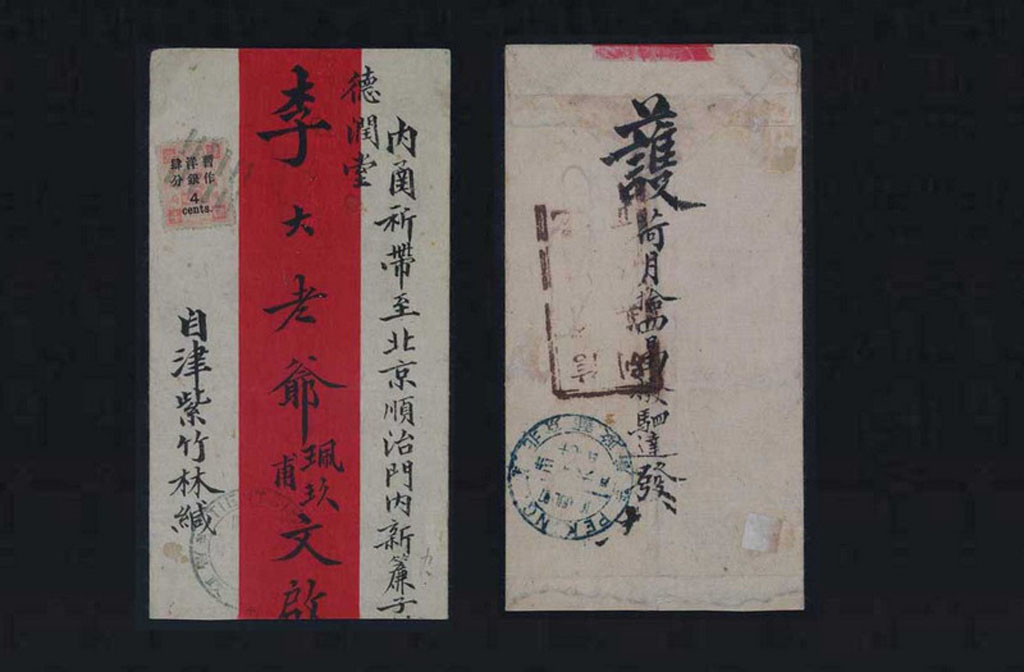 內函祈帶至北京順治門內新簾子
德潤堂
李大老爺珮玖甫文啟
暫作
洋銀
肆分
4
cents.
自津紫竹林緘
護
荷月
發
PEKING